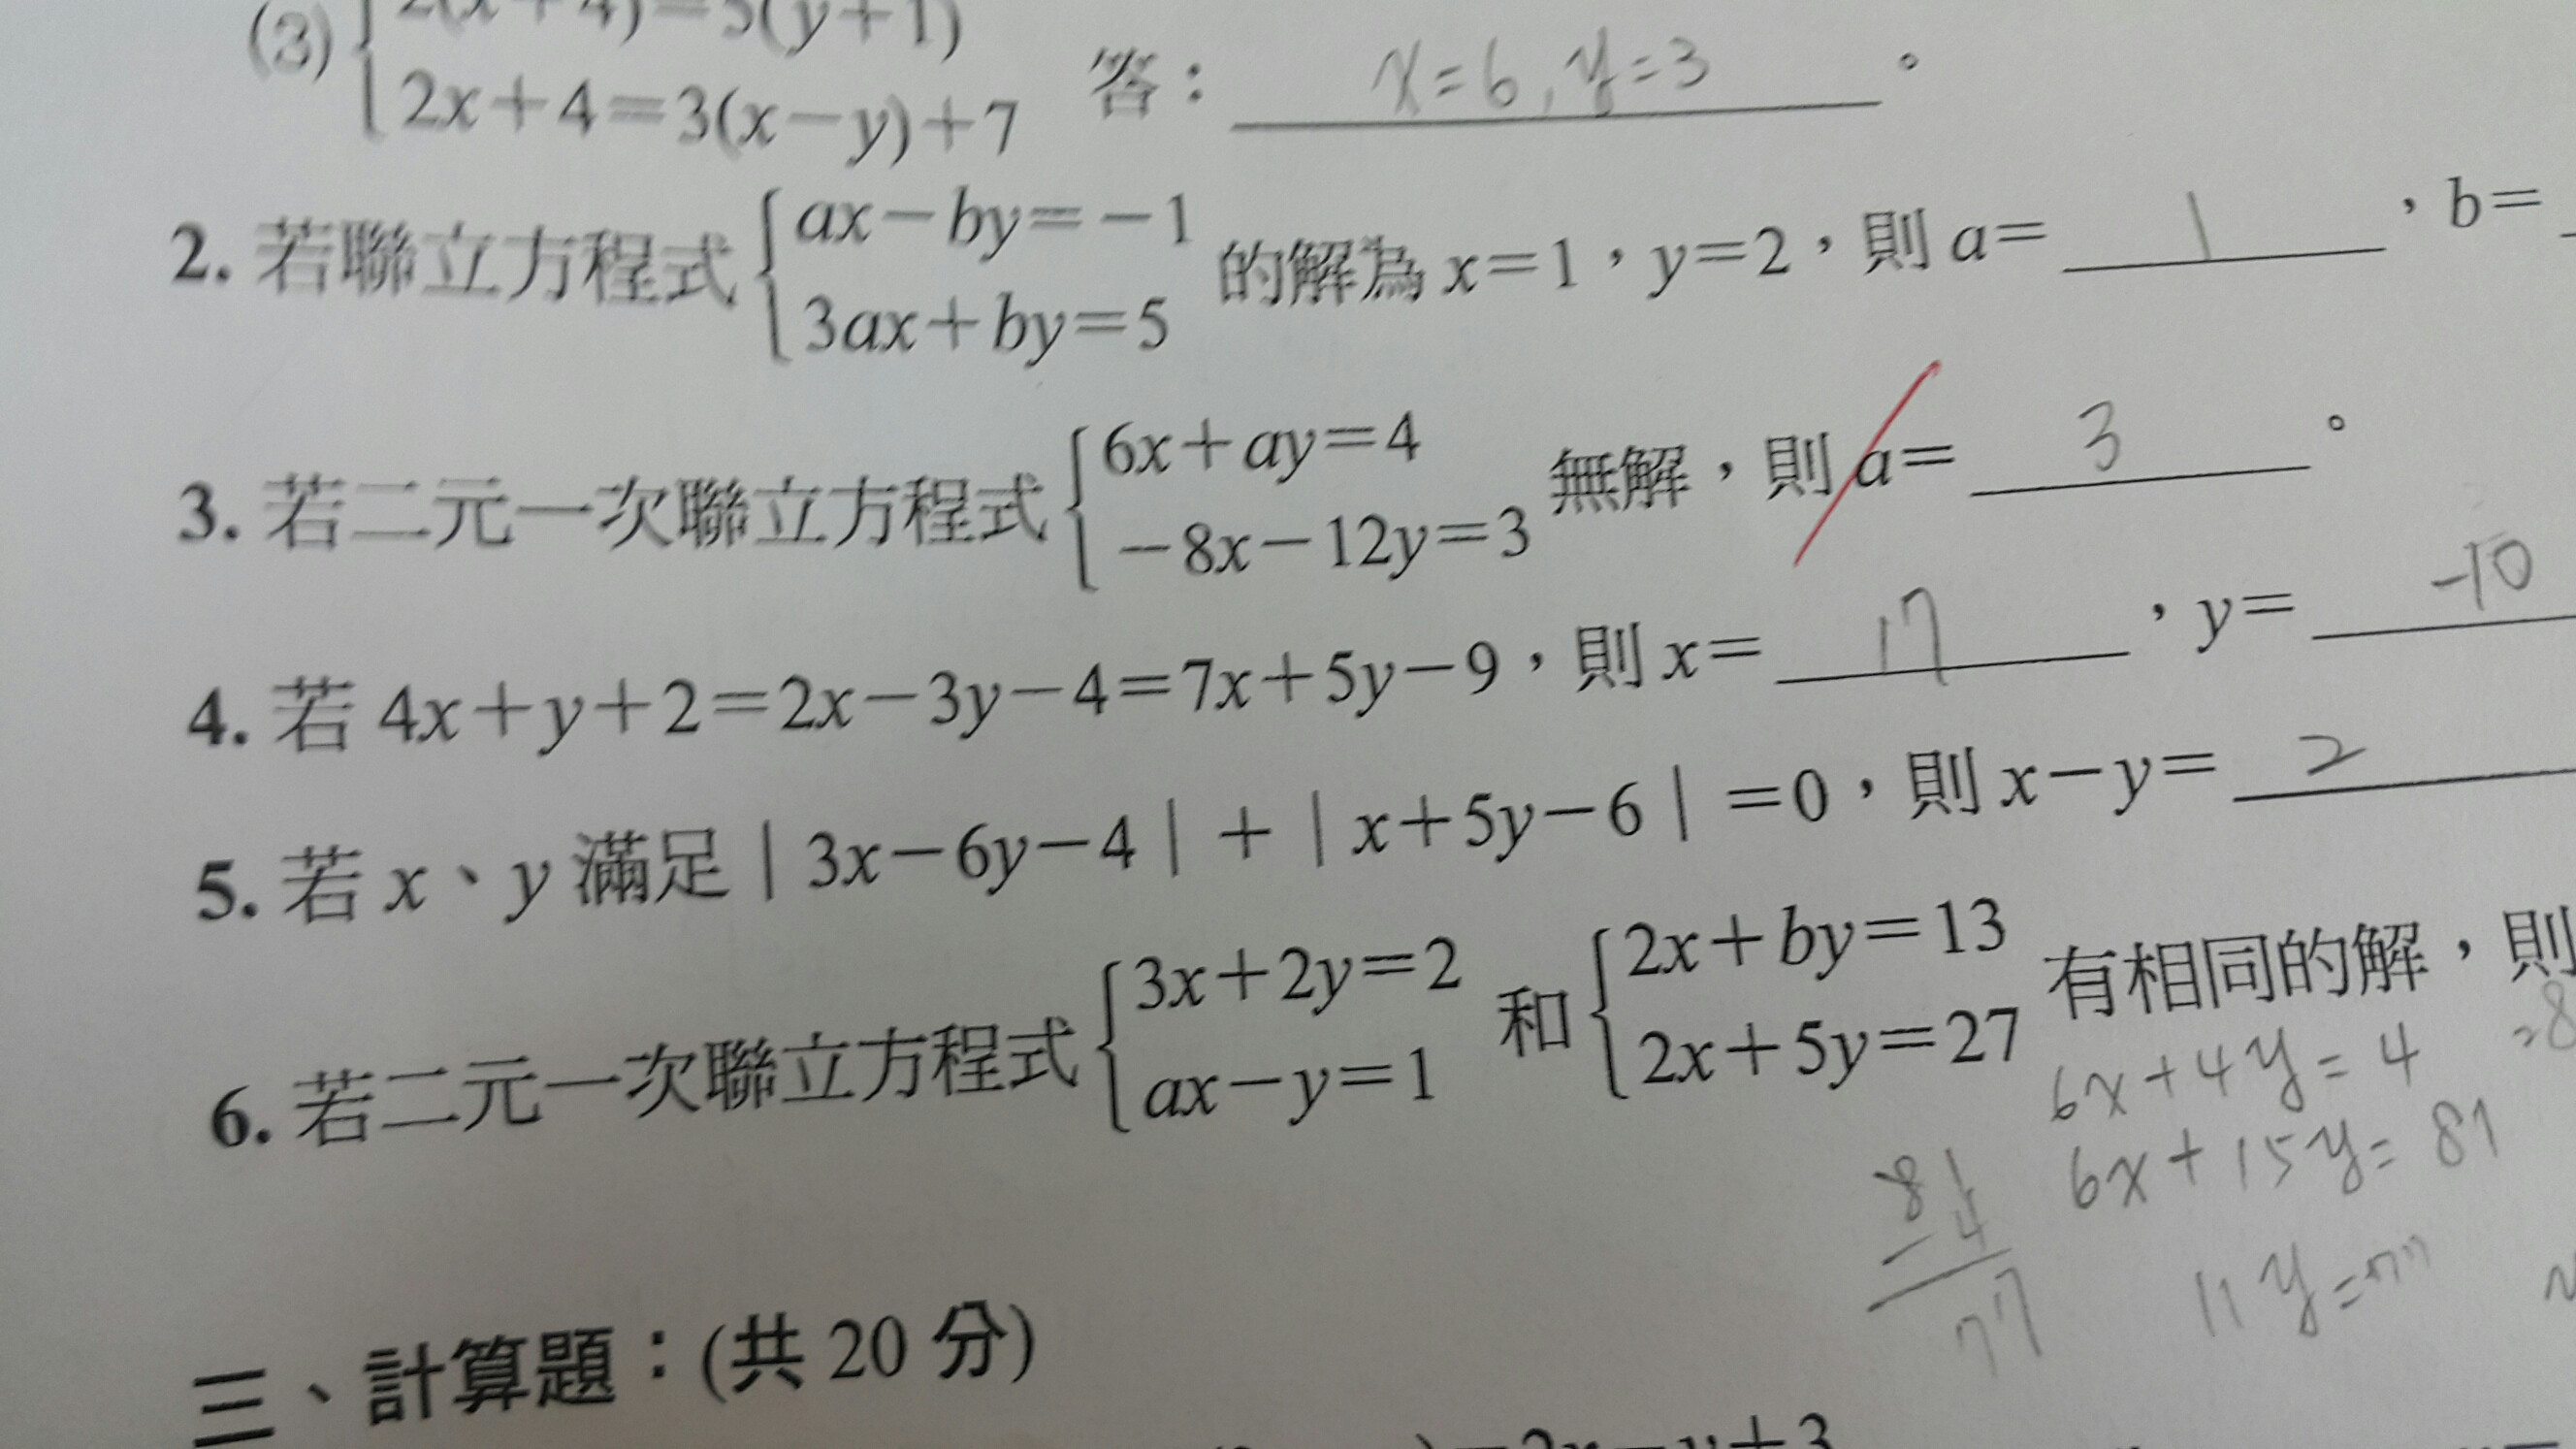 (3) { 2(x+4)=5(y+1)
2x+4=3(x-y)+7 答： x=6, y=3 。
2. 若聯立方程式 { ax-by=-1
3ax+by=5 的解為 x=1，y=2，則 a= 1 ，b=
3. 若二元一次聯立方程式 { 6x+ay=4
-8x-12y=3 無解，則 a= 3 。
4. 若 4x+y+2=2x-3y-4=7x+5y-9，則 x= 17 ，y= -10
5. 若 x、y 滿足｜3x-6y-4｜+｜x+5y-6｜=0，則 x-y= 2
6. 若二元一次聯立方程式 { 3x+2y=2
ax-y=1 和 { 2x+by=13
2x+5y=27 有相同的解，則
6x+4y=4
6x+15y=81
81
-4
77
11y=77
三、計算題：(共 20 分)